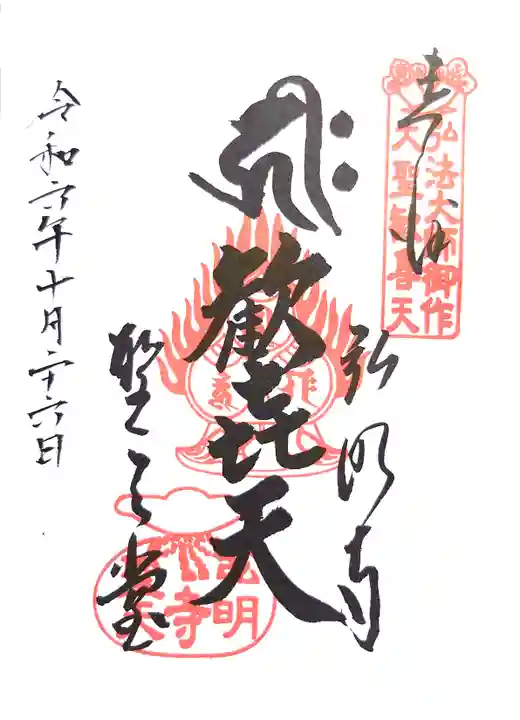 奉拝
弘法大師御作
大聖歓喜天
弘明寺
歓㐂天
聖天堂
弘明寺
令和六年十月二十六日